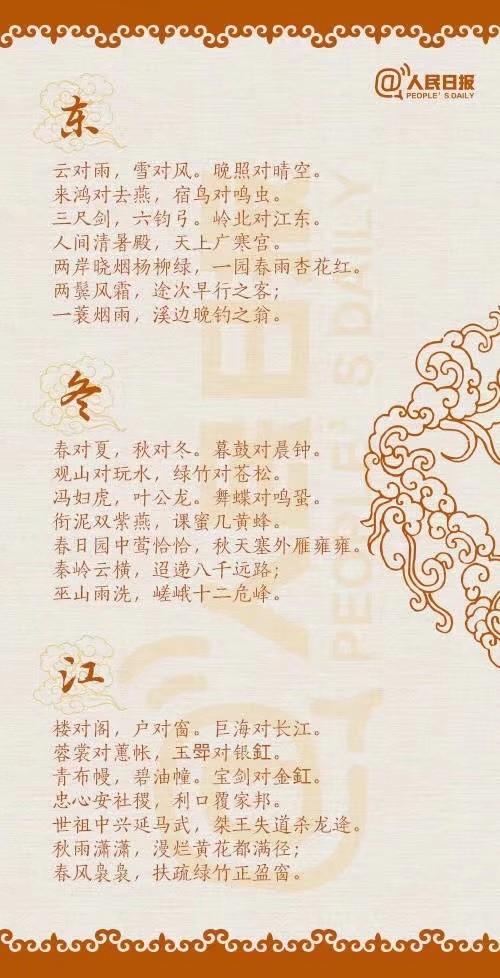 @人民日报
PEOPLE'S DAILY
东
云对雨，雪对风。晚照对晴空。
来鸿对去燕，宿鸟对鸣虫。
三尺剑，六钧弓。岭北对江东。
人间清暑殿，天上广寒宫。
两岸晓烟杨柳绿，一园春雨杏花红。
两鬓风霜，途次早行之客；
一蓑烟雨，溪边晚钓之翁。
冬
春对夏，秋对冬。暮鼓对晨钟。
观山对玩水，绿竹对苍松。
冯妇虎，叶公龙。舞蝶对鸣蛩。
衔泥双紫燕，课蜜几黄蜂。
春日园中莺恰恰，秋天塞外雁雍雍。
秦岭云横，迢递八千远路；
巫山雨洗，嵯峨十二危峰。
江
楼对阁，户对窗。巨海对长江。
蓉裳对蕙帐，玉斝对银釭。
青布幔，碧油幢。宝剑对金釭。
忠心安社稷，利口覆家邦。
世祖中兴延马武，桀王失道杀龙逄。
秋雨潇潇，漫烂黄花都满径；
春风袅袅，扶疏绿竹正盈窗。
@人民日报
PEOPLE'S DAILY